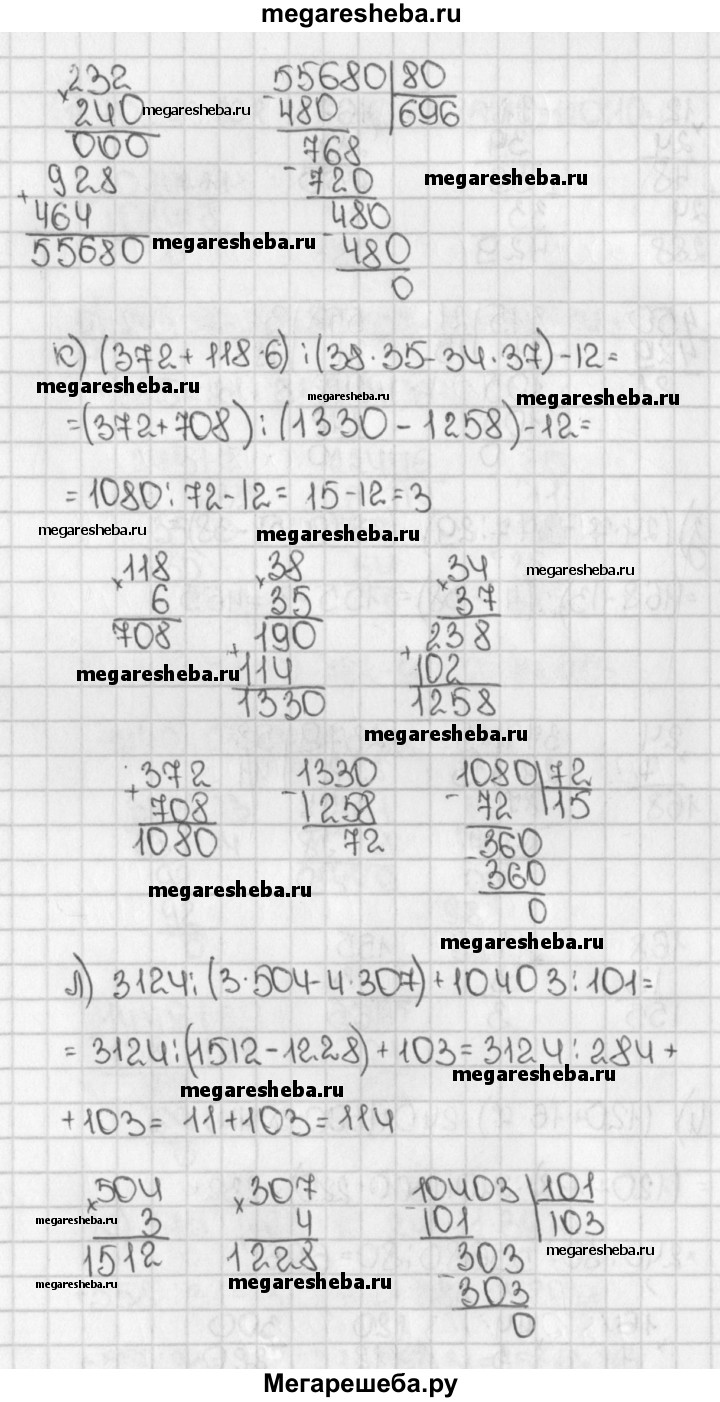 megaresheba.ru
232 55680 | 80
× 240 megaresheba.ru - 480 | 696
000 768
928 - 720 megaresheba.ru
+ 464 480
55680 megaresheba.ru - 480
0
к) (372 + 118·6) : (38·35 - 34·37) - 12 =
megaresheba.ru megaresheba.ru megaresheba.ru
= (372 + 708) : (1330 - 1258) - 12 =
= 1080 : 72 - 12 = 15 - 12 = 3
megaresheba.ru megaresheba.ru
× 118 × 38 × 34 megaresheba.ru
6 35 37
708 190 238
megaresheba.ru + 114 + 102
1330 1258
megaresheba.ru
+ 372 - 1330 1080 | 72
708 1258 - 72 | 15
1080 72 360
megaresheba.ru - 360
0
megaresheba.ru
л) 3124 : (3·504 - 4·307) + 10403 : 101 =
= 3124 : (1512 - 1228) + 103 = 3124 : 284 +
megaresheba.ru megaresheba.ru
+ 103 = 11 + 103 = 114
× 504 × 307 10403 | 101
megaresheba.ru 3 4 - 101 | 103
1512 1228 303 megaresheba.ru
megaresheba.ru megaresheba.ru - 303
0
Мегарешеба.ру